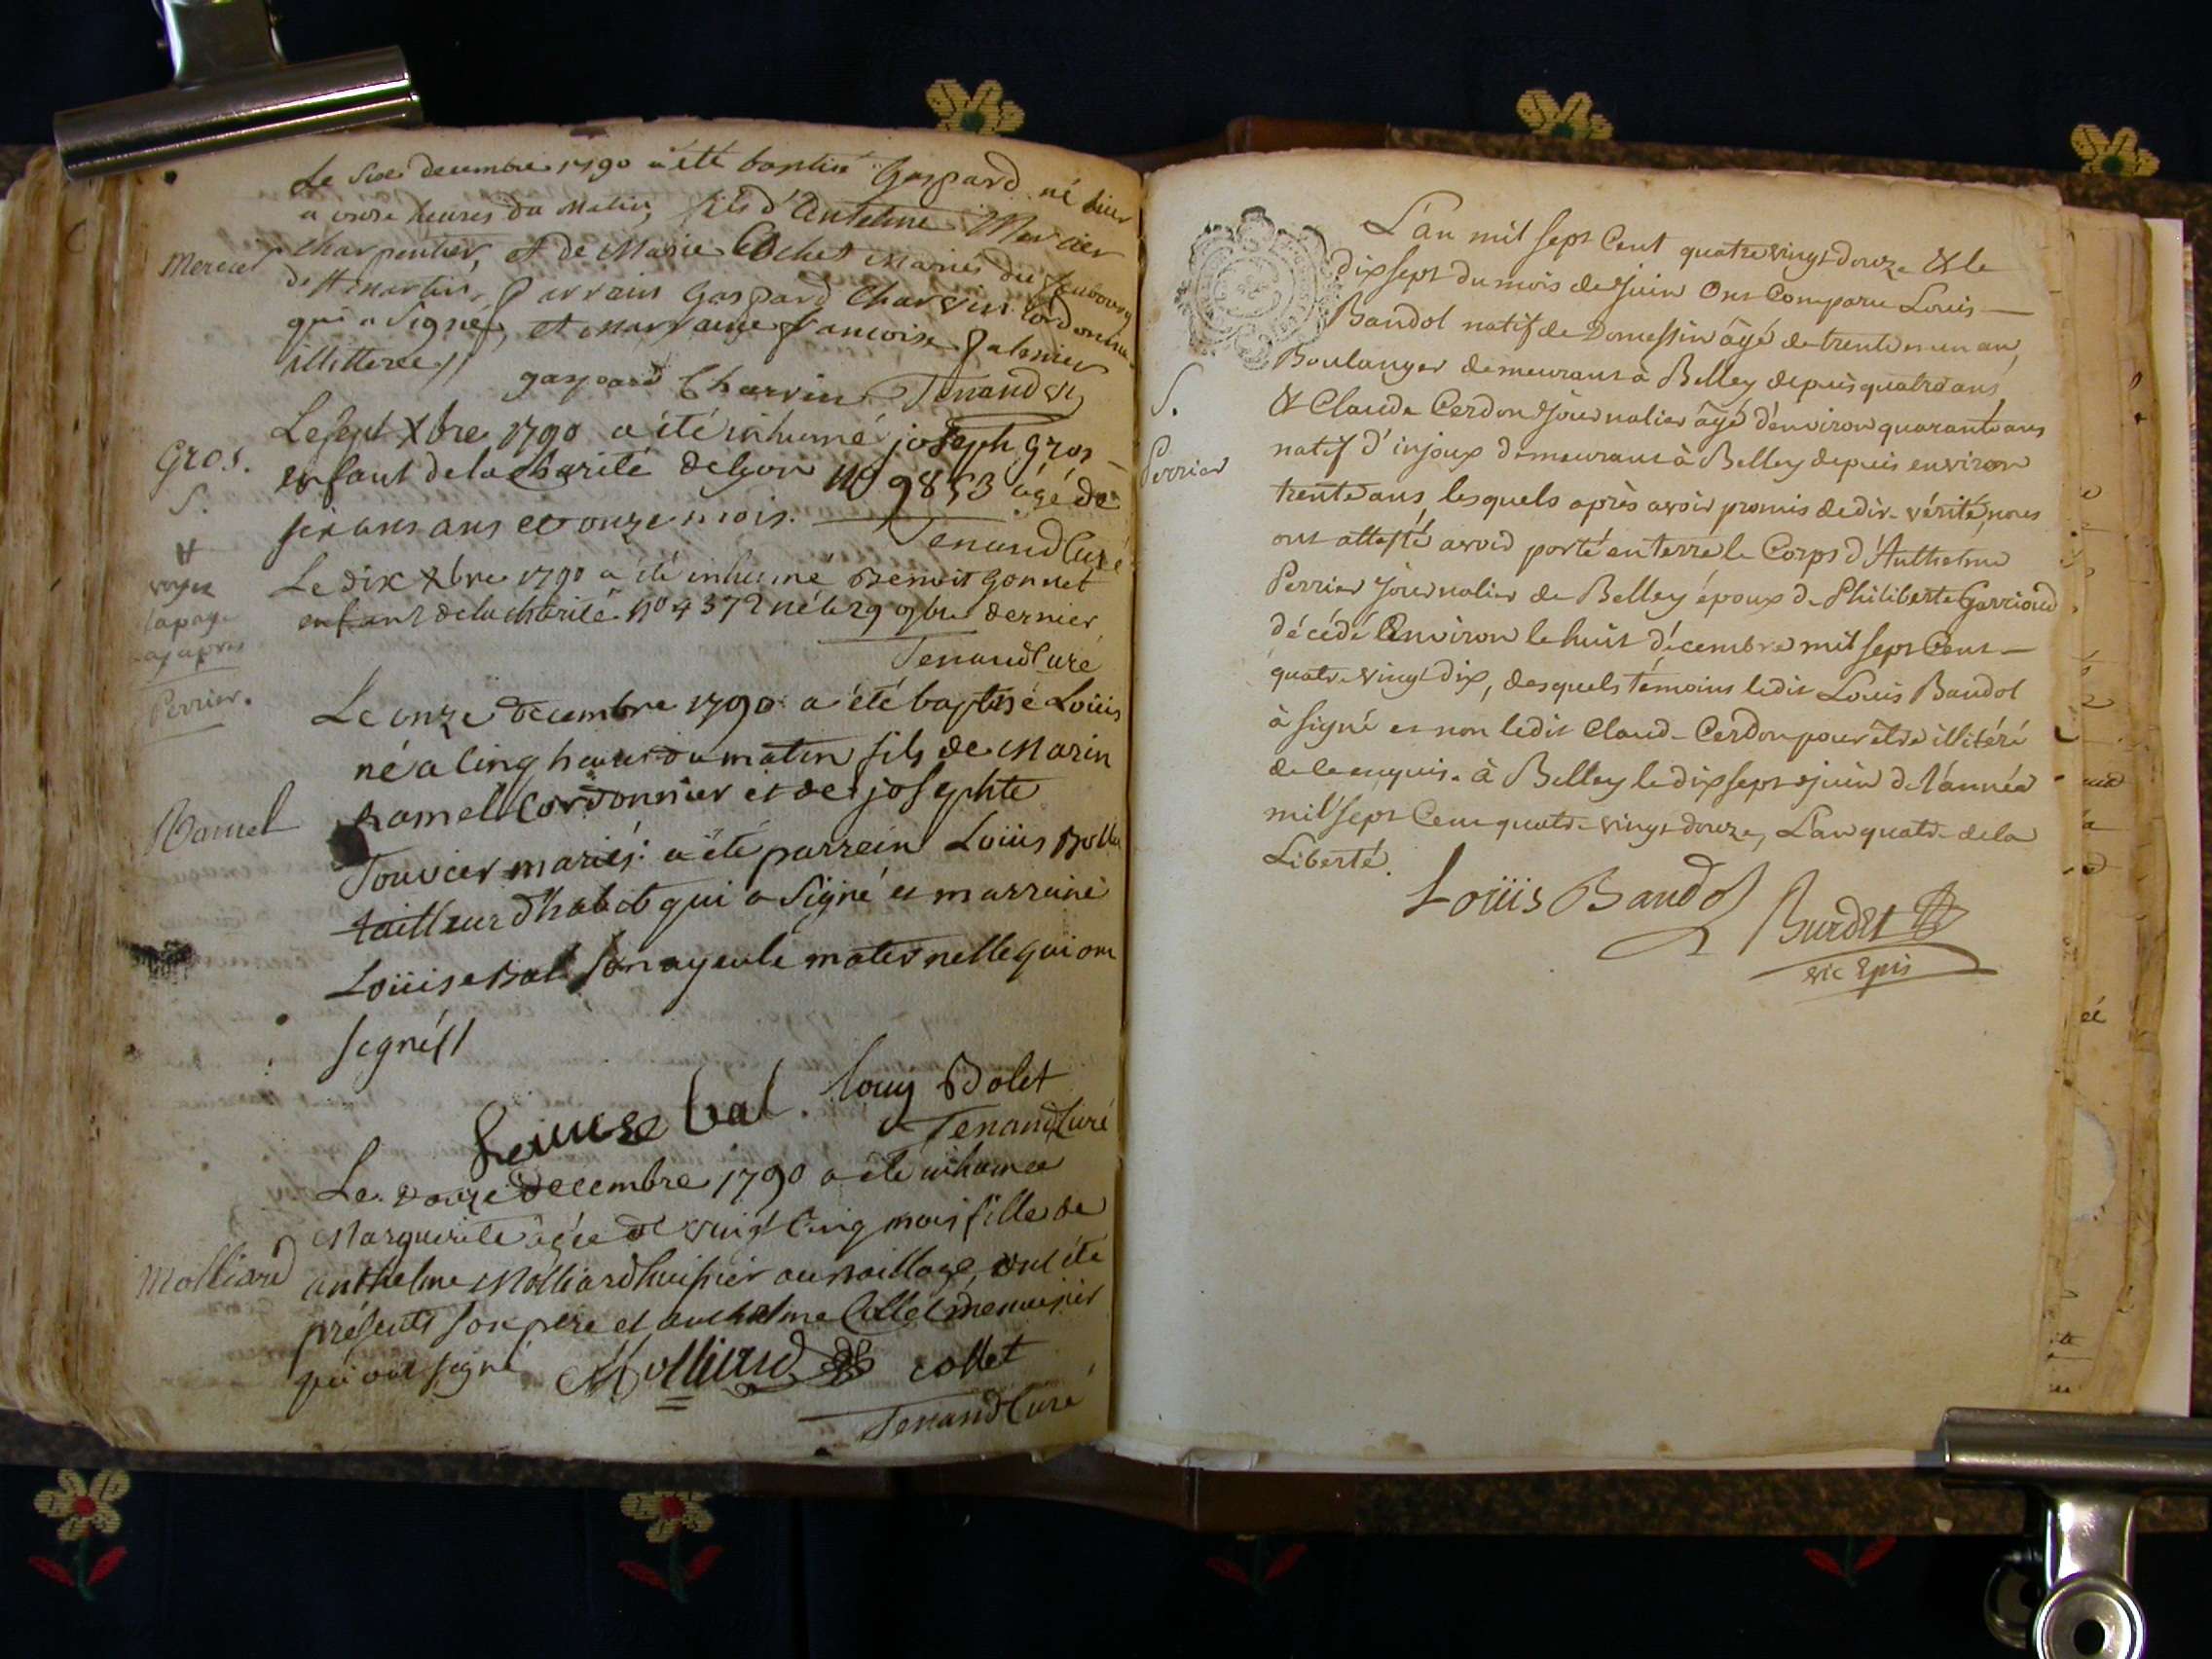 Le six decembre 1790 a été baptisé Gaspard né hier
a onze heures du matin, fils d'Antelme Mercier
charpentier, et de Marie Cochet mariés du fauxbourg
Mercier
de st martin, parrain Gaspard Charvin cordonnier
qui a signé, et marraine francoise
illitterée //
gaspard Charvin Tenand
Le sept Xbre 1790 a été inhumé joseph gros
Gros.
S.
enfant de la charité de lyon No 9853 âgé de
six ans ans et onze mois.
Tenand Curé
#
voyez
la page
cy apres
Perrier.
Le dix Xbre 1790 a été inhumé Benoit Gonnet
enfant de la charité No 4372 né le 29 9bre dernier
Tenand Curé
Le onze decembre 1790 a été baptisé Loüis
né a cinq heures du matin fils de Marin
Ramel
Ramel Cordonnier et de josephte
Touvier mariés. a été parrein Loüis
tailleur d'habit qui a signé et marraine
Loüise Bal son ayeule maternelle qui ont
signé //
Louise bal . louis Bolet
Tenand Curé
Le douze decembre 1790 a été inhumée
Marguerite âgée de vingt cinq mois fille de
Molliard
anthelme Molliard huissier au baillage, ont été
présents son pere et anthelme Collet menuisier
qui ont signé Molliard collet
Tenand Curé
L'an mil sept Cent quatre vingt douze & le
dix sept du mois de Juin Ont Comparu Louis —
Bandol natif de Domessin âgé de trente un an,
Boulanger demeurant à Belley depuis quatre ans,
S.
Perrier
& Claude Cerdon Journalier âgé d'environ quarante ans
natif d'injoux demeurant à Belley depuis environ
trente ans, lesquels après avoir promis de dire vérité, nous
ont attesté avoir porté en terre le Corps d'Anthelme
Perrier Journalier de Belley époux de Philiberte Garrioud
décédé Environ le huit décembre mil sept Cent —
quatre vingt dix, desquels témoins ledit Louis Bandol
à signé et non ledit Claude Cerdon pour être illitéré
de ce enquis. à Belley le dix sept juin de l'année
mil sept Cent quatre vingt douze, L'an quatre de la
Liberté.
Loüis Bandol
Burdet
vic Epis